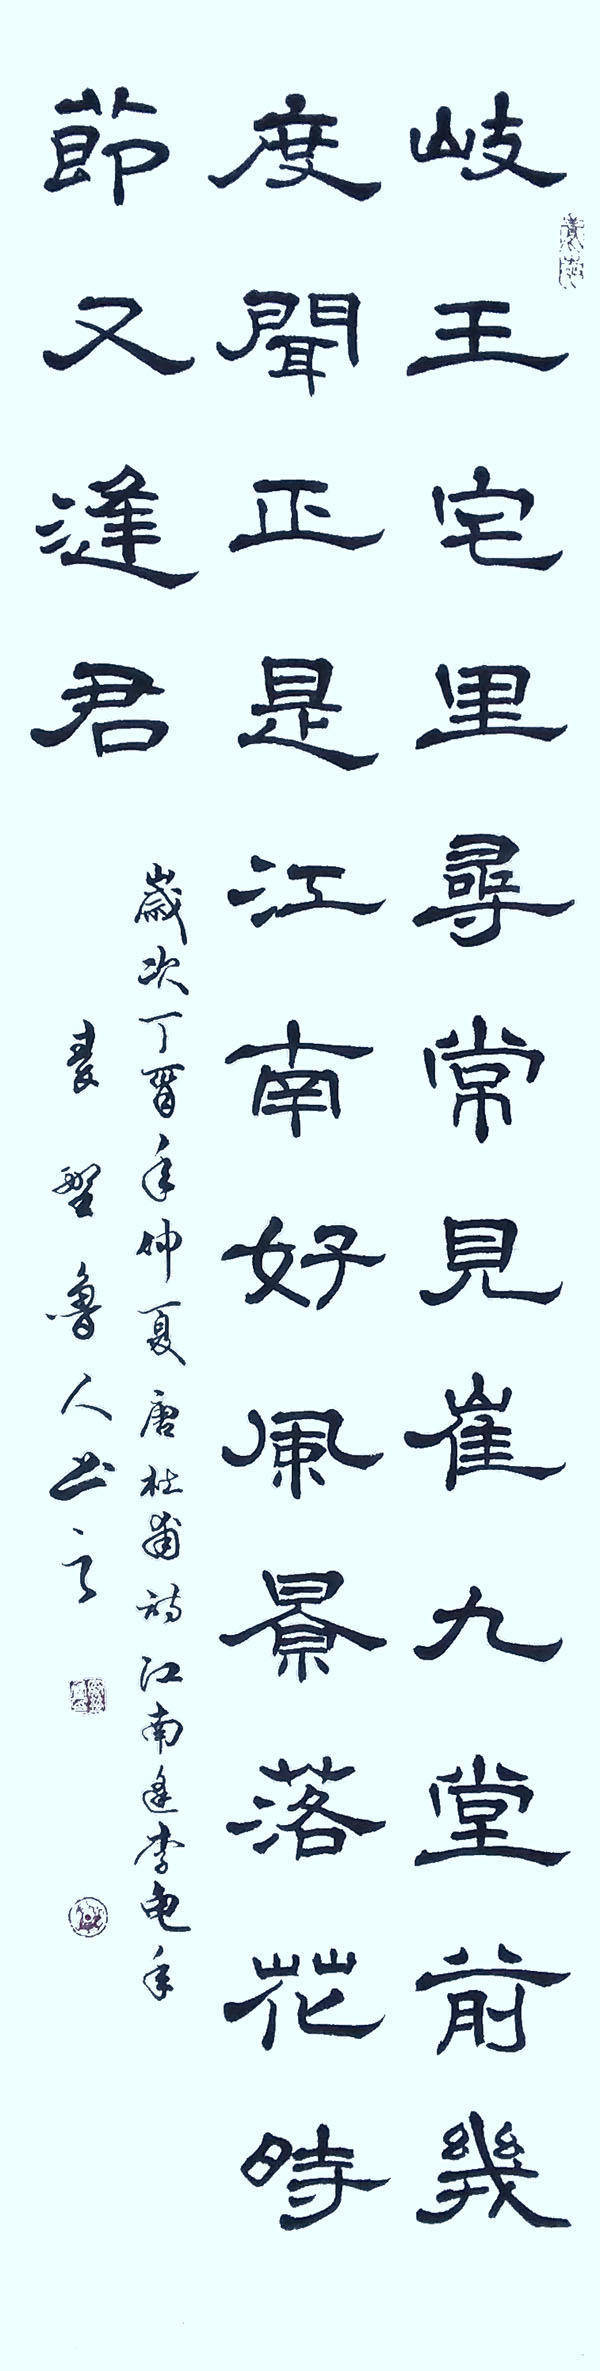 岐王宅里尋常見崔九堂前幾
度聞正是江南好風景落花時
節又逢君
歲次丁酉年仲夏唐杜甫詩江南逢李龟年
聖魯人书之